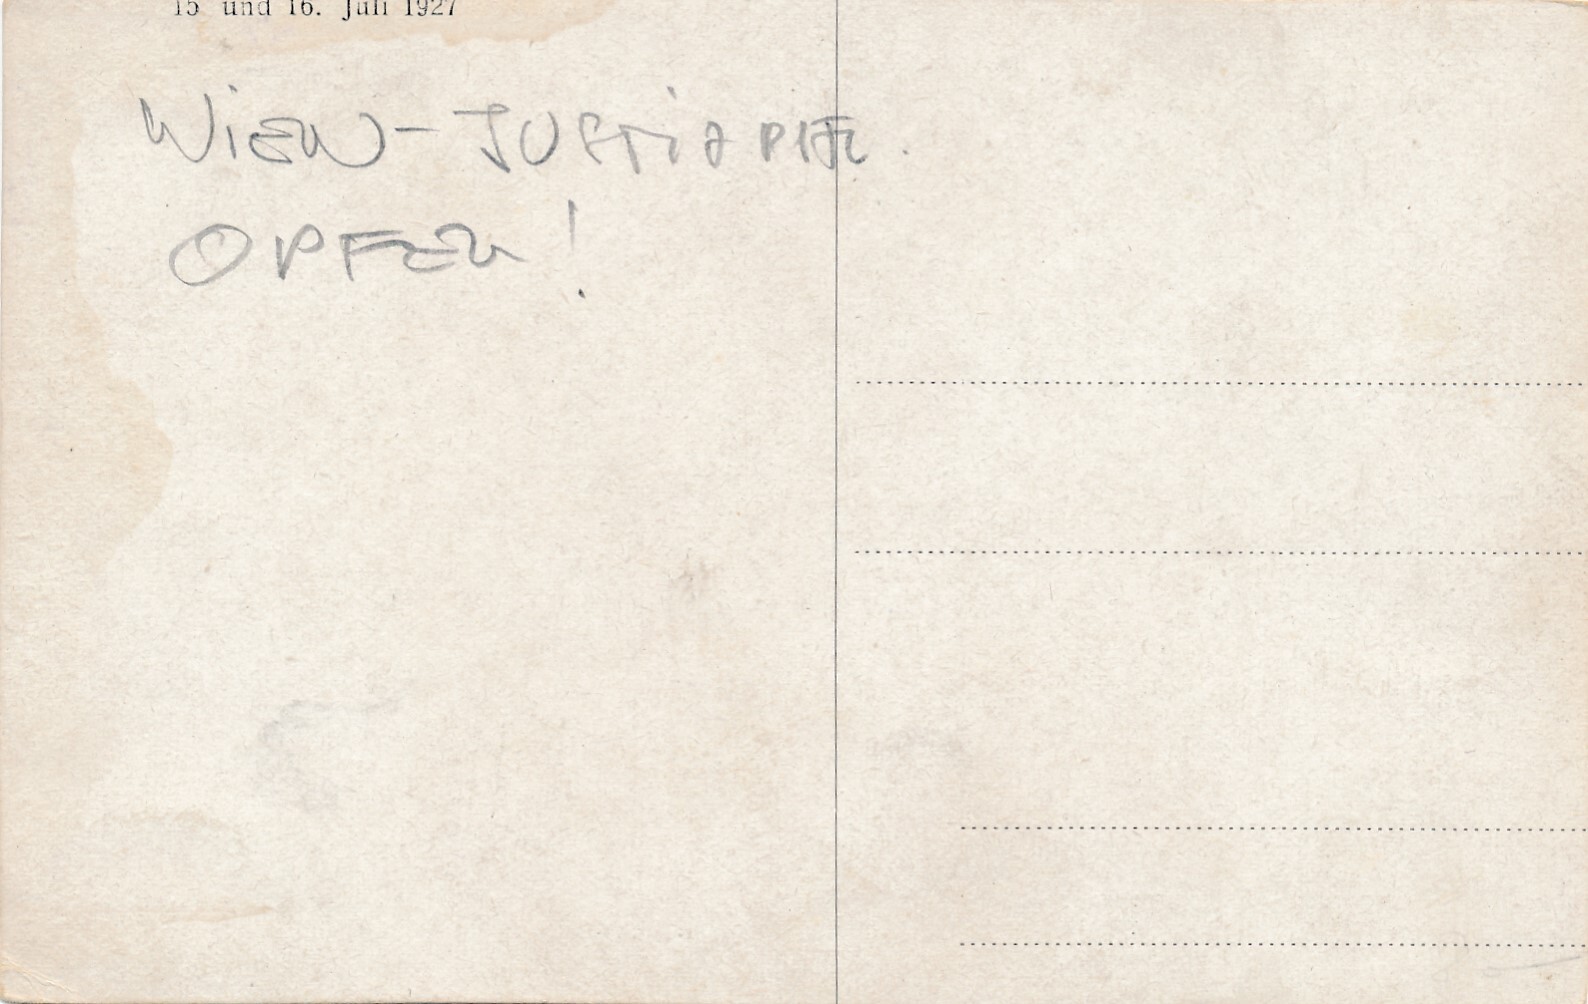 15 und 16. Juli 1927
WIEN - JUSTIZPAL.
OPFER!